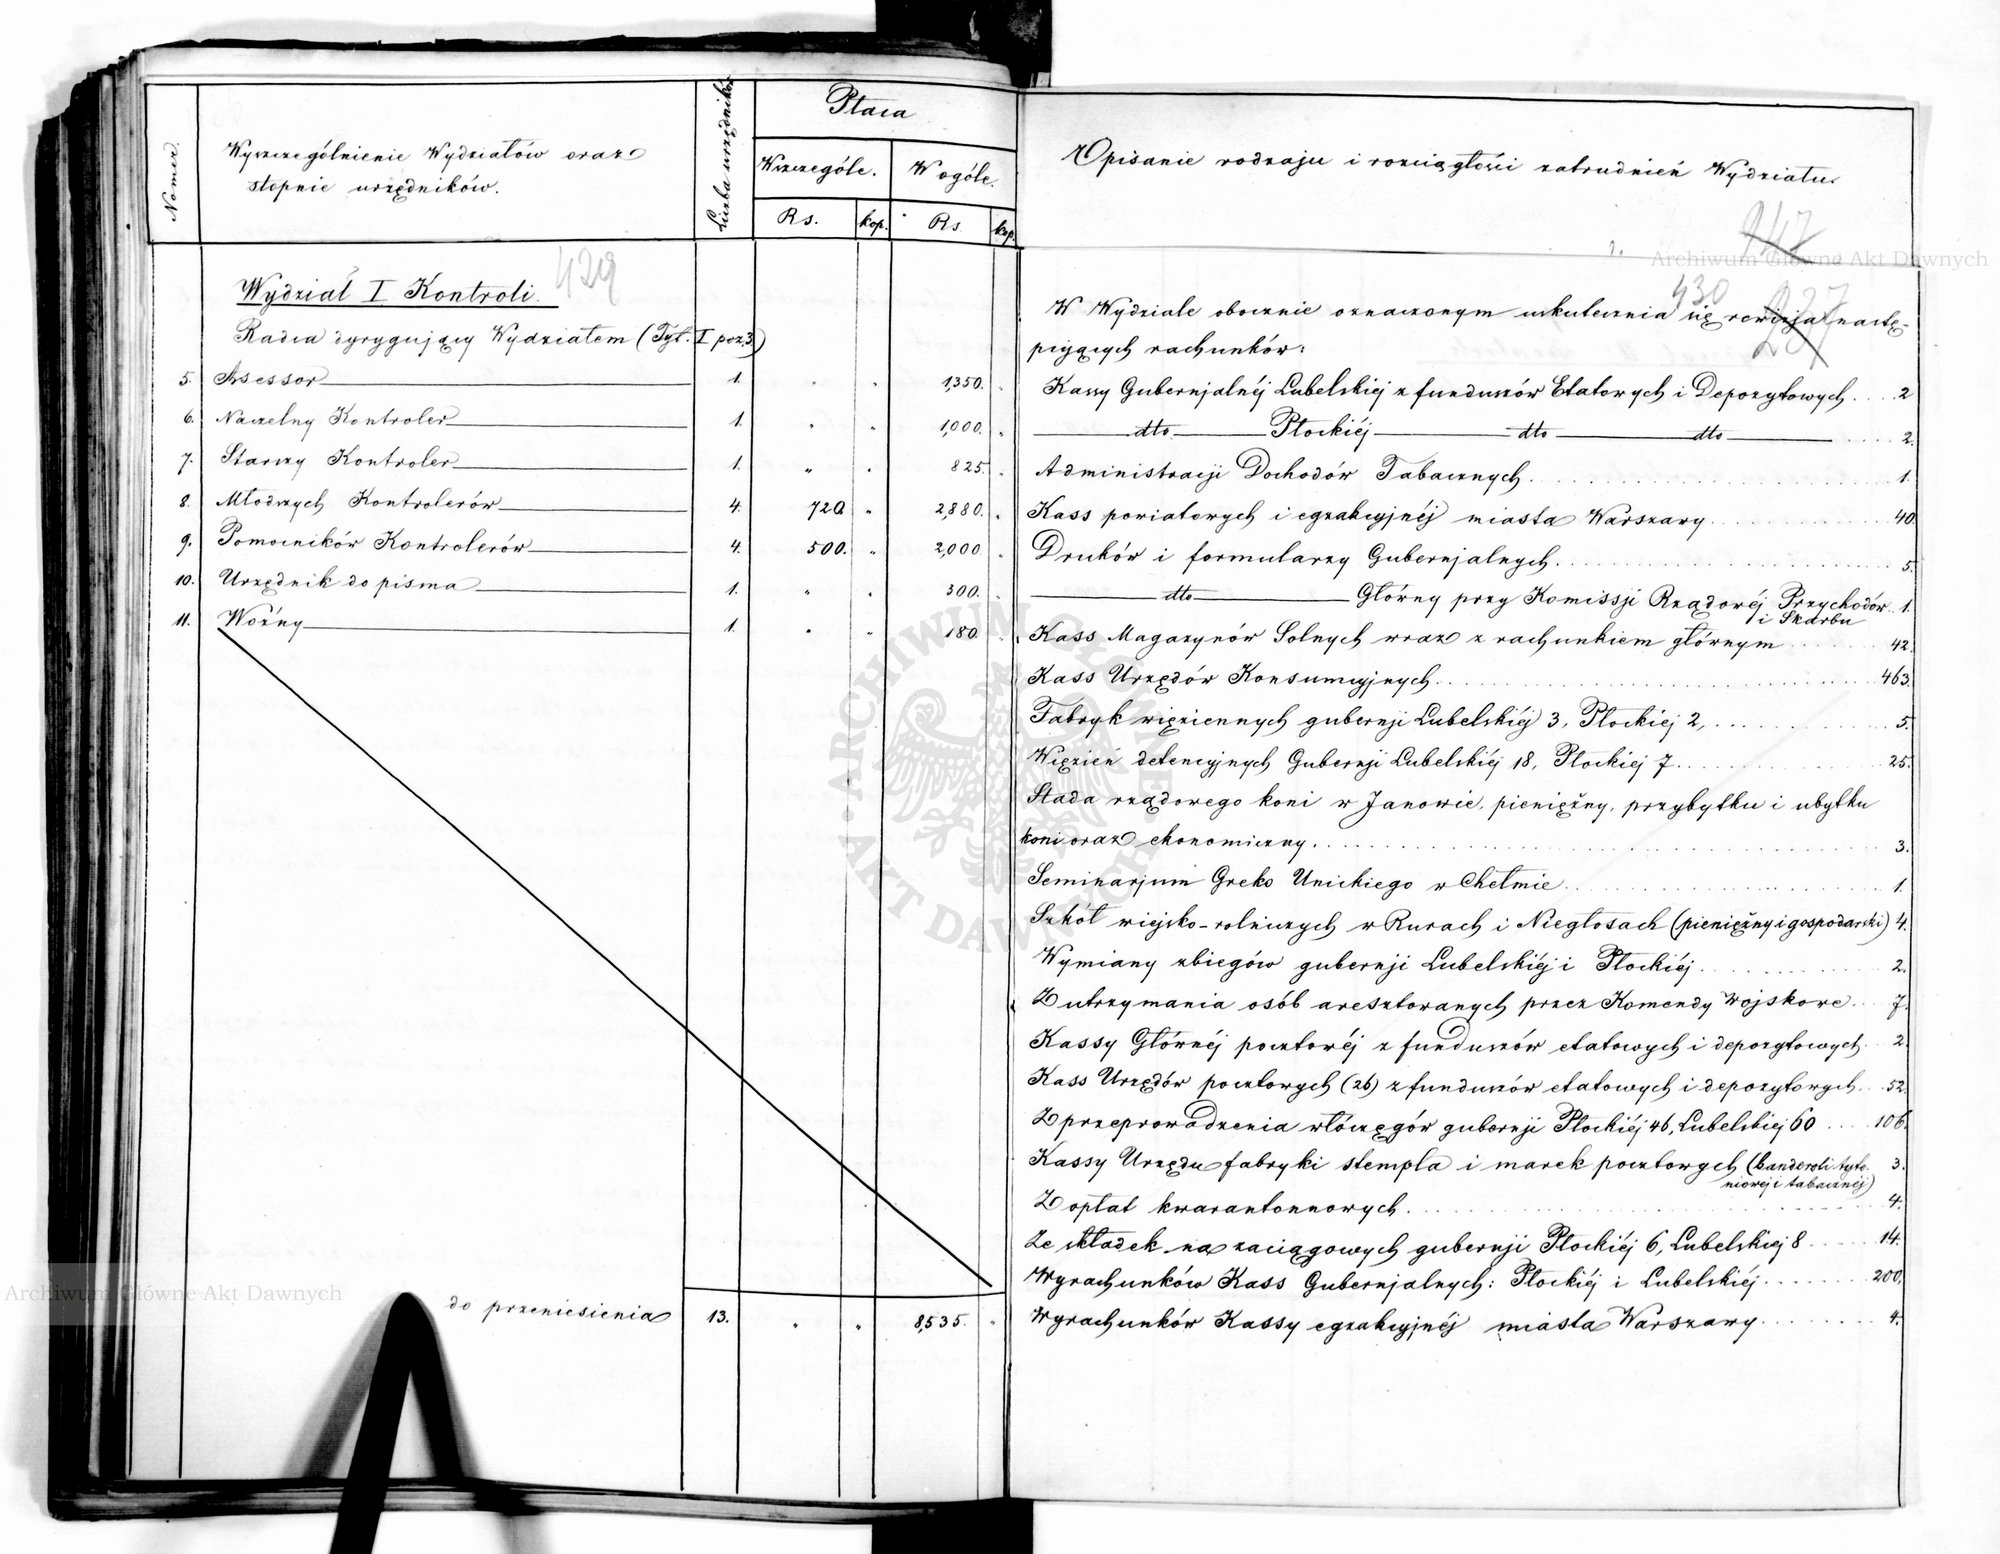 Numer.
Wyszczególnienie Wydziałów oraz
stopnie urzędników.
Liczba urzędników
Płaca
Wszczególe.
W ogóle.
Rs.
kop.
Rs.
kop.
Wydział I Kontroli.
429
Radca dyrygujący Wydziałem (Tyt. I poz. 3)
5. Assessor 1. " " 1,350. "
6. Naczelny Kontroler 1. " " 1,000. "
7. Starszy Kontroler 1. " " 825. "
8. Młodszych Kontrolerów 4. 720 " 2,880. "
9. Pomocników Kontrolerów 4. 500. " 2,000. "
10. Urzędnik do pisma 1. " " 300. "
11. Woźny 1. " " 180. "
do przeniesienia 13. " " 8,535. "
Opisanie rodzaju i rozciągłości zatrudnień Wydziału.
247
430
237
W Wydziale obocznie oznaczonym uskutecznia się rewizja nastę-
pujących rachunków:
Kassy Gubernjalnéj Lubelskiej z funduszów Etatowych i Depozytowych 2
dto Płockiéj dto dto 2.
Administracji Dochodów Tabacznych 1.
Kass powiatowych i egzakcyjnéj miasta Warszawy 40.
Druków i formularzy Gubernjalnych 5.
dto Główny przy Komissji Rządowéj Przychodów 1.
i Skarbu
Kass Magazynów Solnych wraz z rachunkiem głównym 42.
Kass Urzędów Konsumcyjnych 463.
Fabryk więziennych gubernji Lubelskiéj 3, Płockiej 2, 5.
Więzień detencyjnych Gubernji Lubelskiéj 18, Płockiéj 7 25.
Stada rządowego koni w Janowie, pieniężny, przybytku i ubytku
koni oraz ekonomiczny 3.
Seminarjum Greko Unickiego w Chełmie 1.
Szkół wiejsko-rolniczych w Rurach i Niegłosach (pieniężny i gospodarski) 4.
Wymiany zbiegów gubernji Lubelskiéj i Płockiéj 2.
Z utrzymania osób aresztowanych przez Komendy wojskowe 7.
Kassy Głównéj pocztowéj z funduszów etatowych i depozytowych 2.
Kass Urzędów pocztowych (26) z funduszów etatowych i depozytowych 52.
Z przeprowadzenia włóczęgów gubernji Płockiéj 46, Lubelskiej 60 106.
Kassy Urzędu fabryki stempla i marek pocztowych (banderoli tyto- 3.
niowéj i tabacznéj)
Z opłat kwarantonnowych 4.
Ze składek na zaciągowych gubernji Płockiéj 6, Lubelskiej 8 14.
Wyrachunków Kass Gubernjalnych: Płockiéj i Lubelskiéj 200.
Wyrachunków Kassy egzakcyjnéj miasta Warszawy 4.
Archiwum Główne Akt Dawnych
Archiwum Główne Akt Dawnych
ARCHIWUM GŁÓWNE AKT DAWNYCH